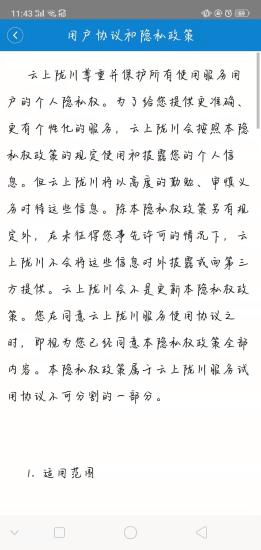 11:43
83
用户协议和隐私政策
云上陇川尊重并保护所有使用服务用
户的个人隐私权。为了给您提供更准确、
更有个性化的服务，云上陇川会按照本隐
私权政策的规定使用和披露您的个人信
息。但云上陇川将以高度的勤勉、审慎义
务对待这些信息。除本隐私权政策另有规
定外，在未征得您事先许可的情况下，云
上陇川不会将这些信息对外披露或向第三
方提供。云上陇川会不是更新本隐私权政
策。您在同意云上陇川服务使用协议之
时，即视为您已经同意本隐私权政策全部
内容。本隐私权政策属于云上陇川服务试
用协议不可分割的一部分。
1. 适用范围